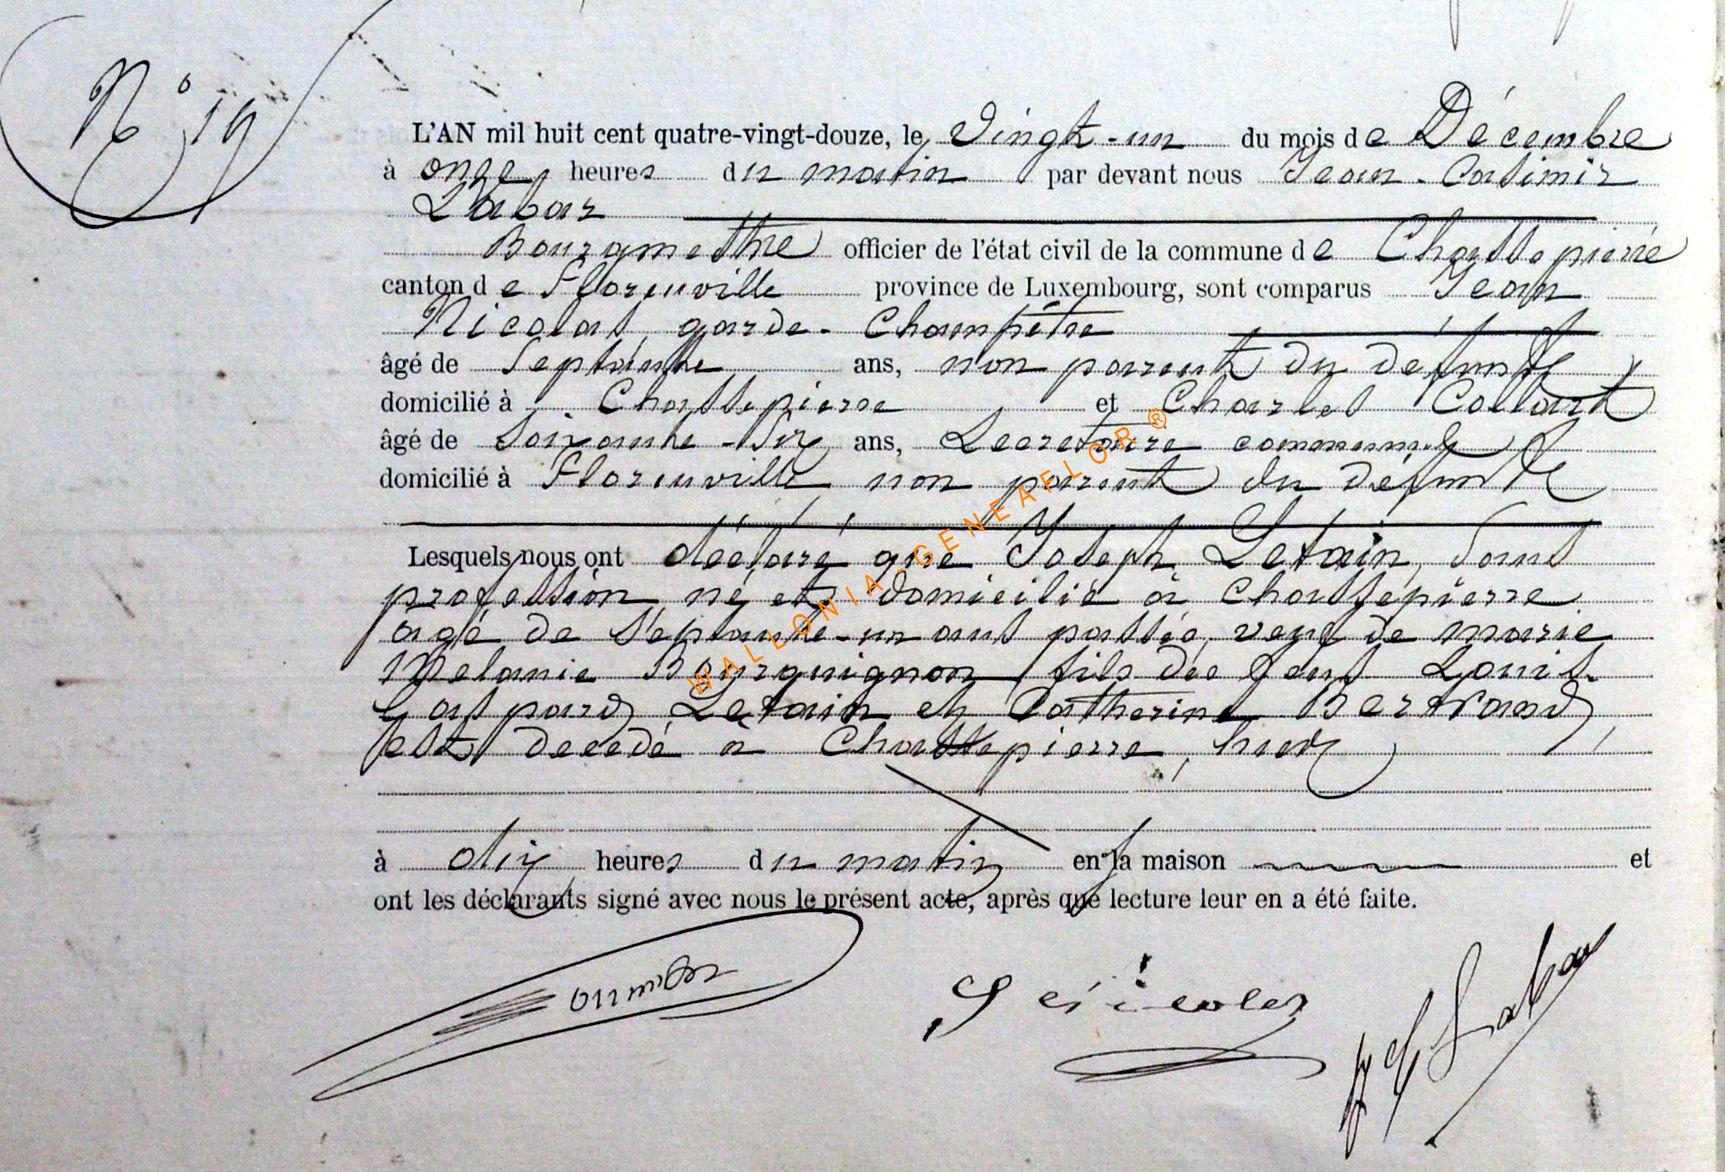 N° 19
L'AN mil huit cent quatre-vingt-douze, le vingt-un du mois de Décembre
à onze heures du matin par devant nous Jean-Casimir
Labar
Bourgmestre officier de l'état civil de la commune de Chassepierre
canton de Florenville province de Luxembourg, sont comparus Jean
Nicolas, garde-Champêtre
âgé de Septante ans, non parent du défunt
domicilié à Chassepierre et Charles Collart
âgé de Soixante-six ans, Secretaire communal
domicilié à Florenville non parent du défunt
Lesquels nous ont déclaré que Joseph Letain, sans
profession, né et domicilié à Chassepierre
agé de Septante-un ans passés, veuf de marie
Melanie Bourguignon fils des feus Louis-
Gaspard Letain et Catherine Bertrand,
est decedé à Chassepierre, hier
à dix heures du matin en sa maison et
ont les déclarants signé avec nous le présent acte, après que lecture leur en a été faite.
J C Labar
WALLONIA-GENEAFLOR®